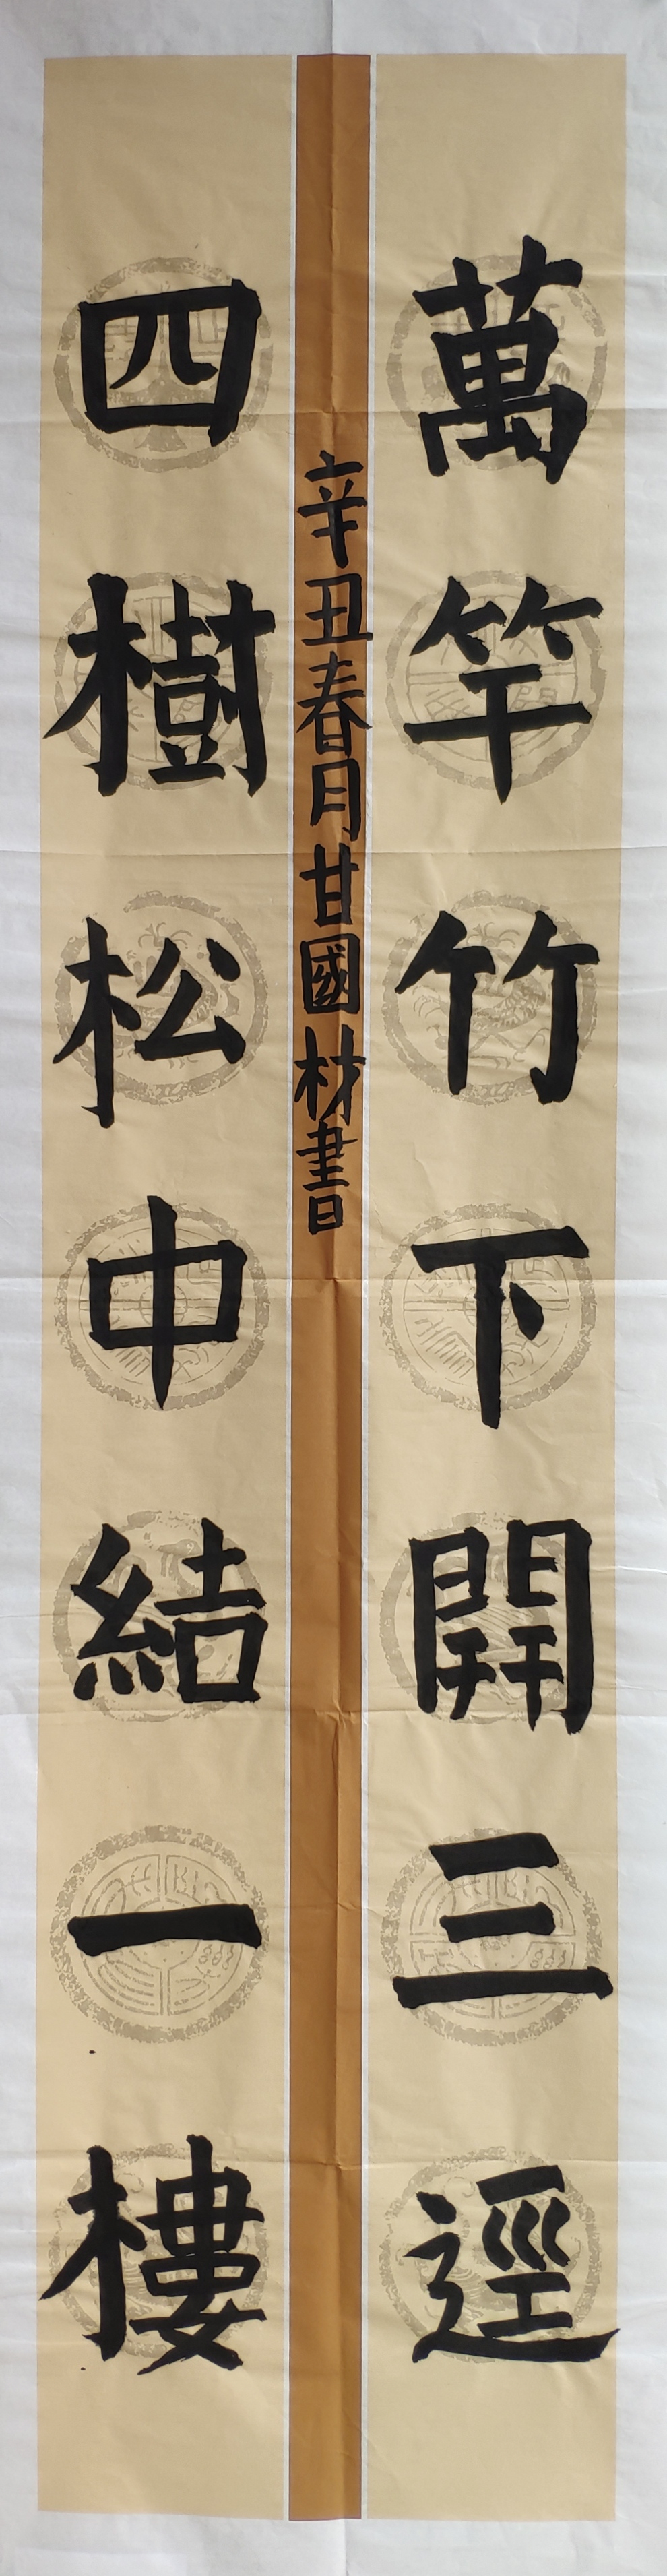 萬竿竹下開三逕
四樹松中結一樓
辛丑春月甘國材書